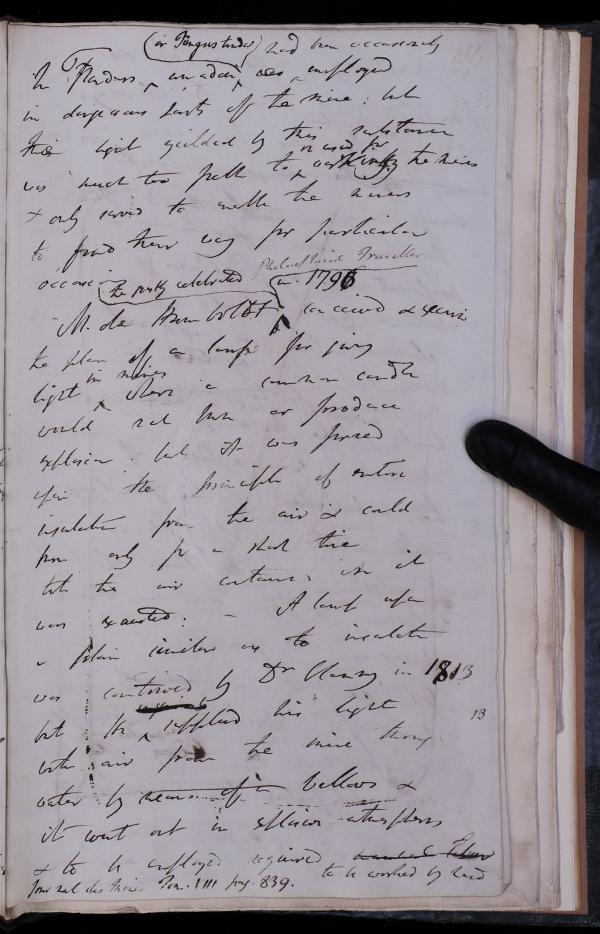 (or Fungus tinder) had been occasionally
In Flanders, amadou, was employed
in dangerous parts of the mine; but
the light yielded by this substance
was much too faint to be used for working the mines
& only served to enable the miners
to find their way for particular
occasions
the justly celebrated Philosophical Traveller
M. de Humboldt in 1796 conceived &
the plan of a lamp for giving
light in mines where a common candle
would not burn or produce
explosion. but it was formed
upon the principle of entire
insulation from the air & could
burn only for a short time
till the air contained in it
was exausted: – A lamp upon
a plan similar as to insulation
was contrived by Dr Clanny in 1813
13
but he supplied his light
with air from the mine through
water by means of a bellows &
it went out in explosive atmospheres
& to be employed required
to be worked by hand
Journal des Mines Tom. VIII pag. 839.